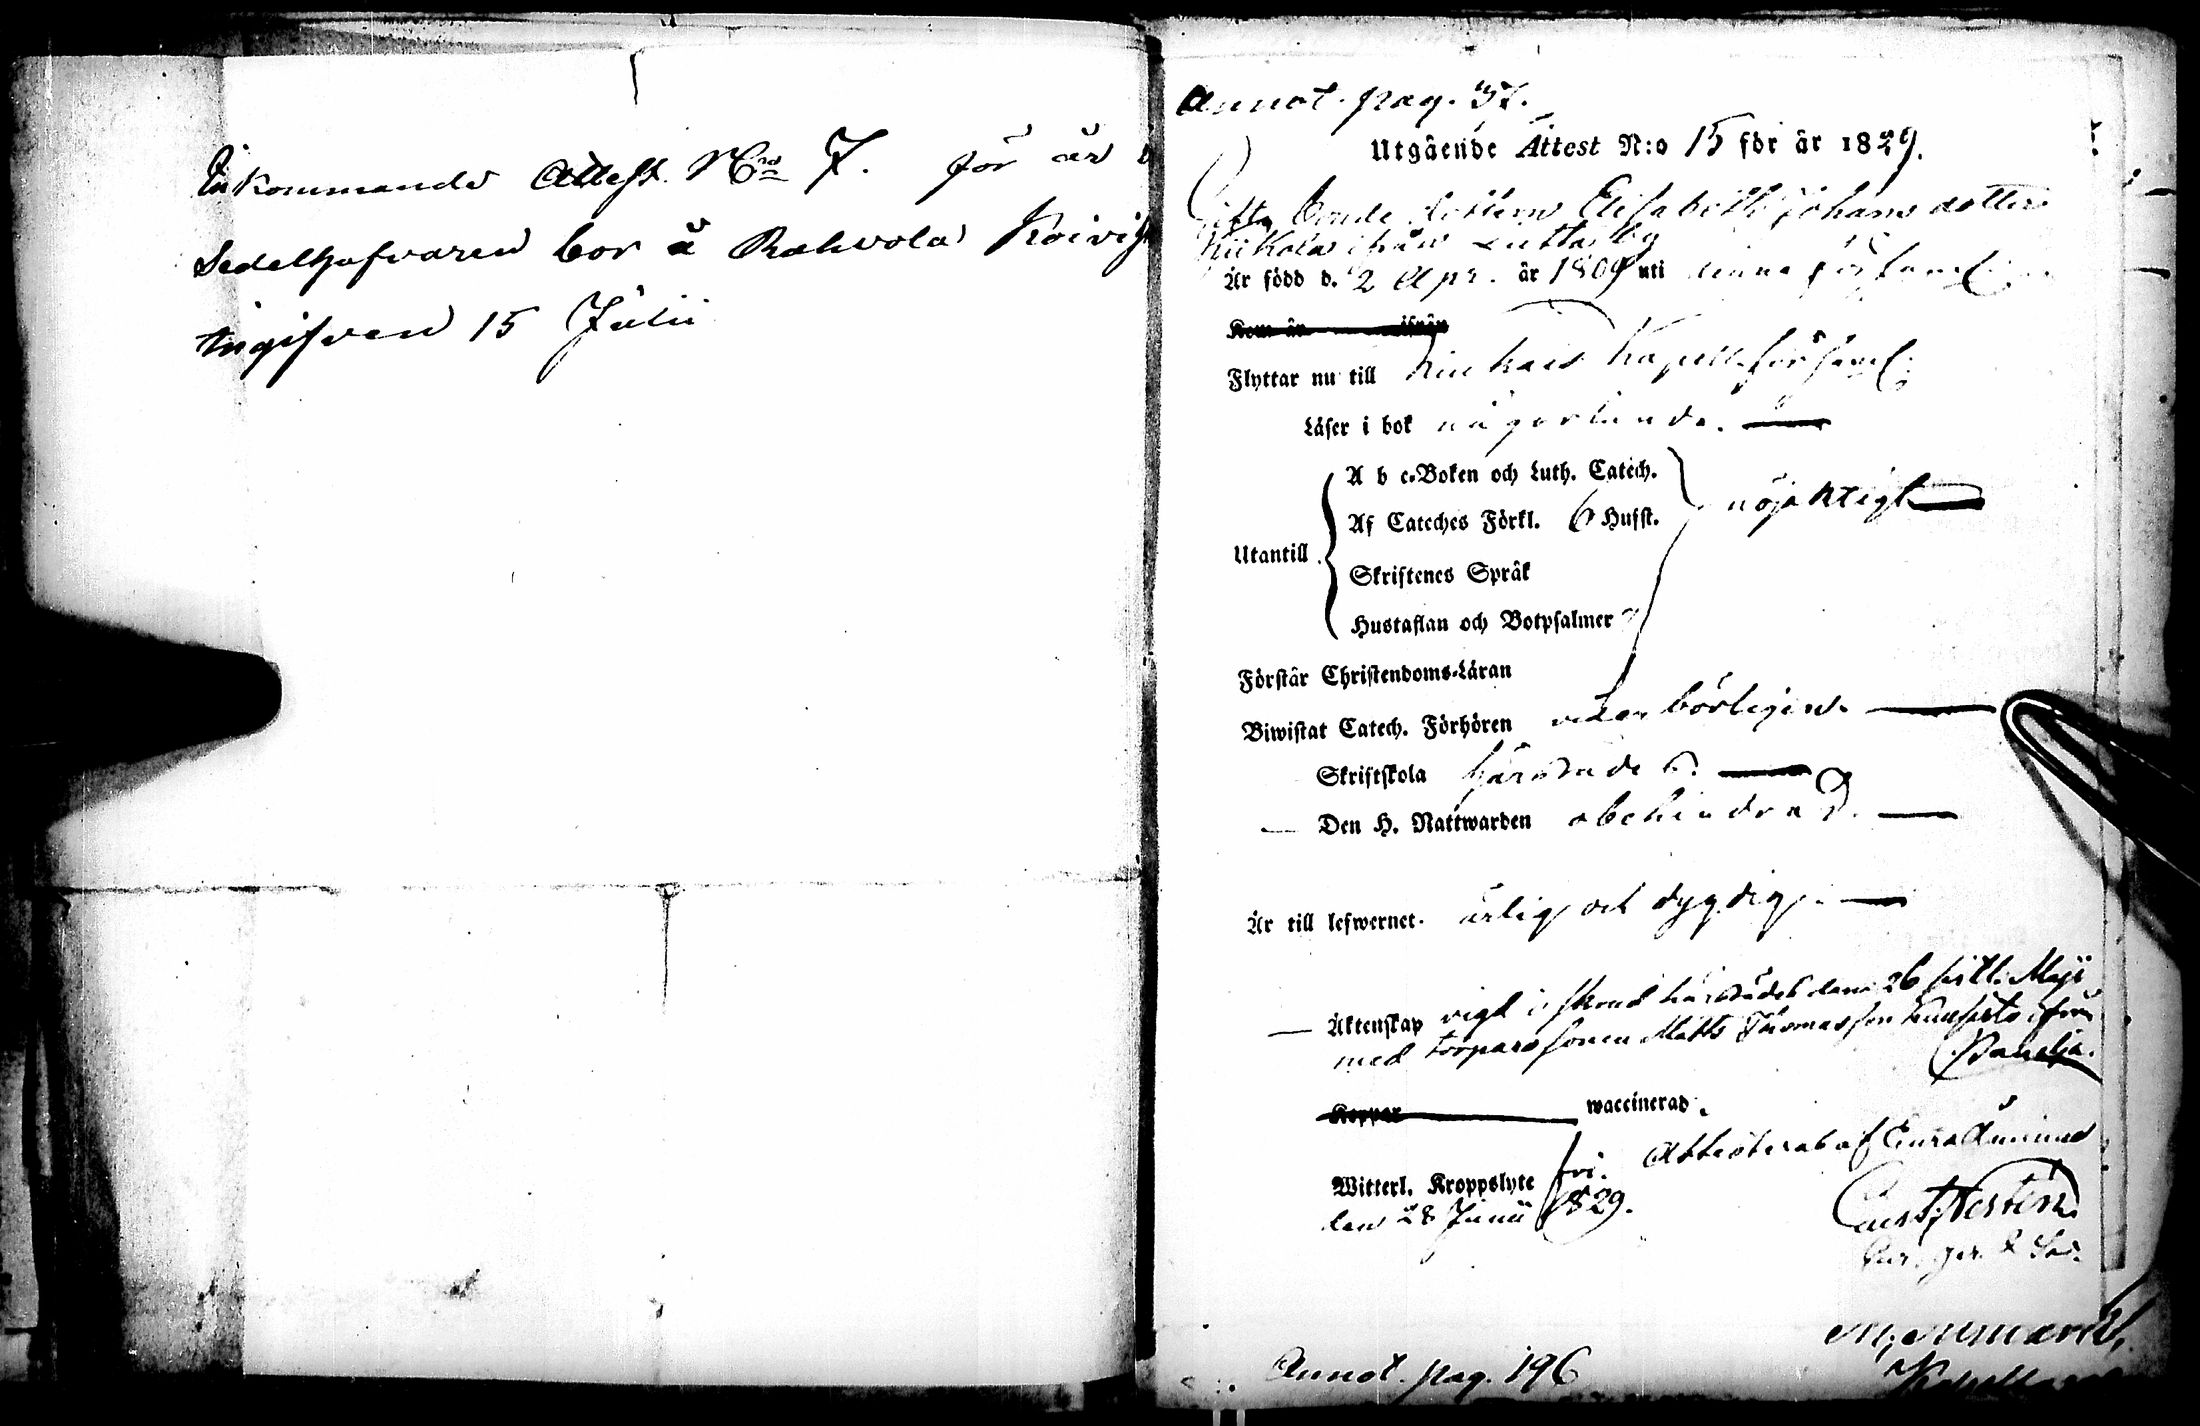 Inkommande Attest Nro 7. för år
Sedelhafvaren bor å Rahvola Koivis
Ingifven 15 Julii
Annot. pag. 37.
Utgående Attest N:o 15 för år 1829.
Gifta bonde dottern Elisabeth Johans dotter
ifrån by
Är född d. 2 Apr. år 1809 uti denna församl:
Kom år ifrån
Flyttar nu till Kiukais Kapellförsaml:
Läser i bok någorlunda.
Utantill
A b c-Boken och Luth. Catech.
Af Cateches Förkl. 6 Hufst.
Skriftenes Språk
Hustaflan och Botpsalmer
nöjaktigt
Förstår Christendoms-Läran
Biwistat Catech. Förhören vederbörligen.
Skriftskola härstädes.
Den H. Nattwarden obehindrad.
Är till lefwernet. ärlig och dygdig.
Äktenskap vigd i härstädes den 26 sistl. Maji
med torpare sonen Matts Thomasson ifrån
Panelia.
Koppor waccinerad.
Witterl. Kroppslyte fri. Attesteras af Eura Åminne
den 28 Junii 1829.
Annot. pag. 196